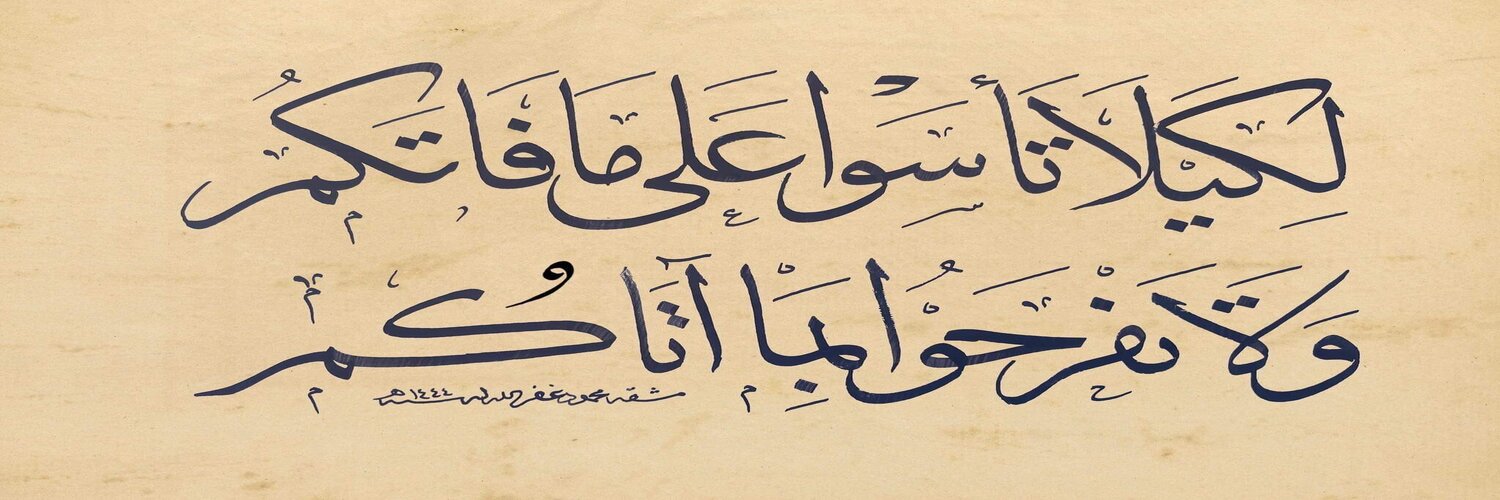 لِكَيْلَا تَأْسَوْا عَلَى مَا فَاتَكُمْ
وَلَا تَفْرَحُوا بِمَا آتَاكُمْ
مشقه محمود غفر الله له سنة ١٤٤٤هـ